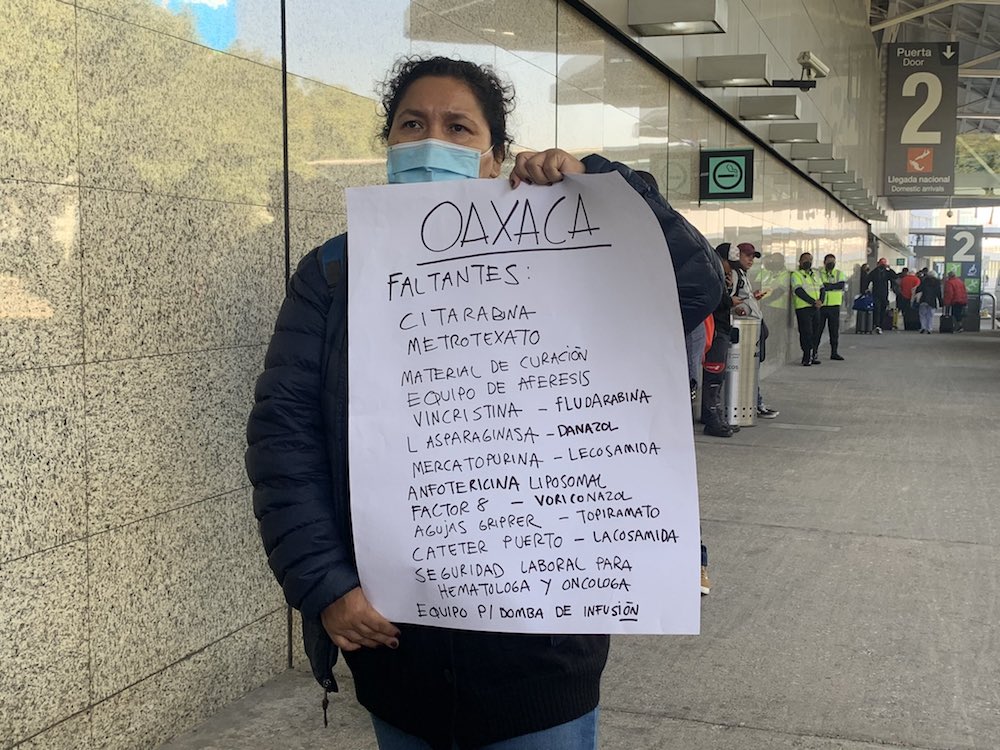 OAXACA
FALTANTES:
CITARABINA
METROTEXATO
MATERIAL DE CURACIÓN
EQUIPO DE AFERESIS
VINCRISTINA - FLUDARABINA
L ASPARAGINASA - DANAZOL
MERCATOPURINA - LECOSAMIDA
ANFOTERICINA LIPOSOMAL
FACTOR 8 - VORICONAZOL
AGUJAS GRIPPER - TOPIRAMATO
CATETER PUERTO - LACOSAMIDA
SEGURIDAD LABORAL PARA
HEMATOLOGA Y ONCOLOGA
EQUIPO P/ BOMBA DE INFUSIÓN
Puerta
Door
2
Llegada nacional
Domestic arrivals
2